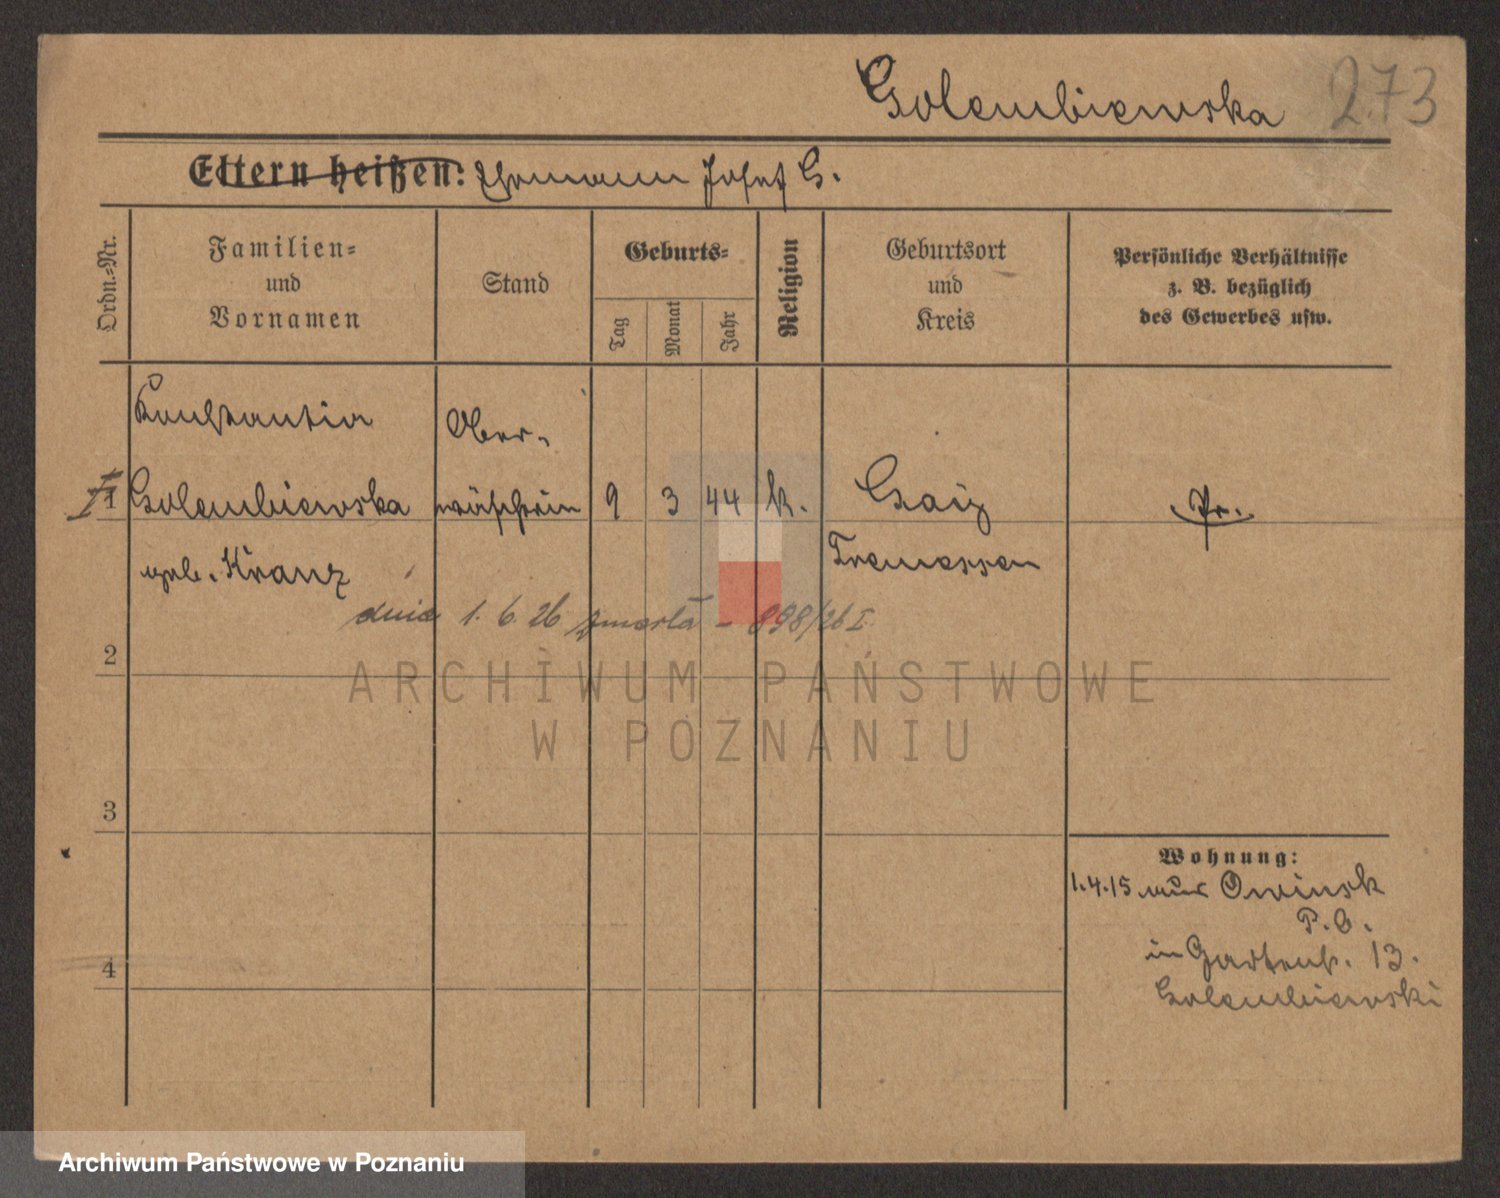 Golembiewska 273
Eltern heißen: Ehemann Josef G.
Ordn.-Nr.
Familien-
und
Vornamen
Stand
Geburts-
Tag
Monat
Jahr
Religion
Geburtsort
und
Kreis
Persönliche Verhältnisse
z. B. bezüglich
des Gewerbes usw.
Konstantia Ober-
1 Golembiewska wäscherin 9 3 44 k. Pr.
geb. Kranz Tremessen
dnia 1. 6. 26 zmarła - 898/26 I
2
ARCHIWUM PAŃSTWOWE
W POZNANIU
3
Wohnung:
1.4.15 aus Owinsk
P. O.
4 in Gartenstr. 13.
Golembiewski
Archiwum Państwowe w Poznaniu